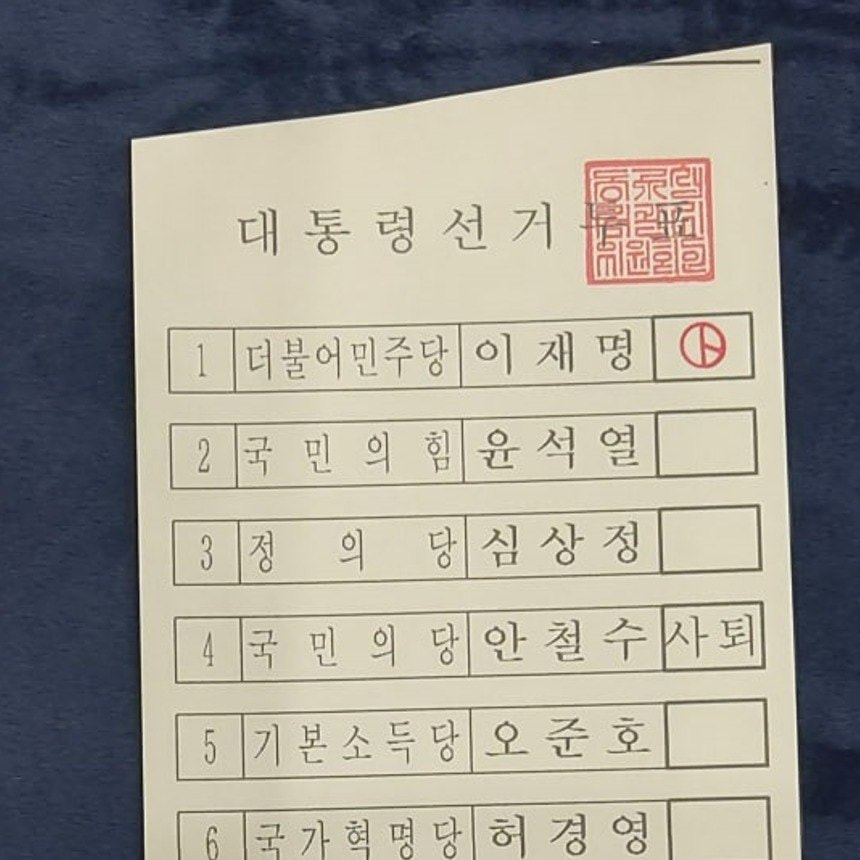 대통령선거투표
1 더불어민주당 이재명
2 국민의힘 윤석열
3 정의당 심상정
4 국민의당 안철수 사퇴
5 기본소득당 오준호
6 국가혁명당 허경영